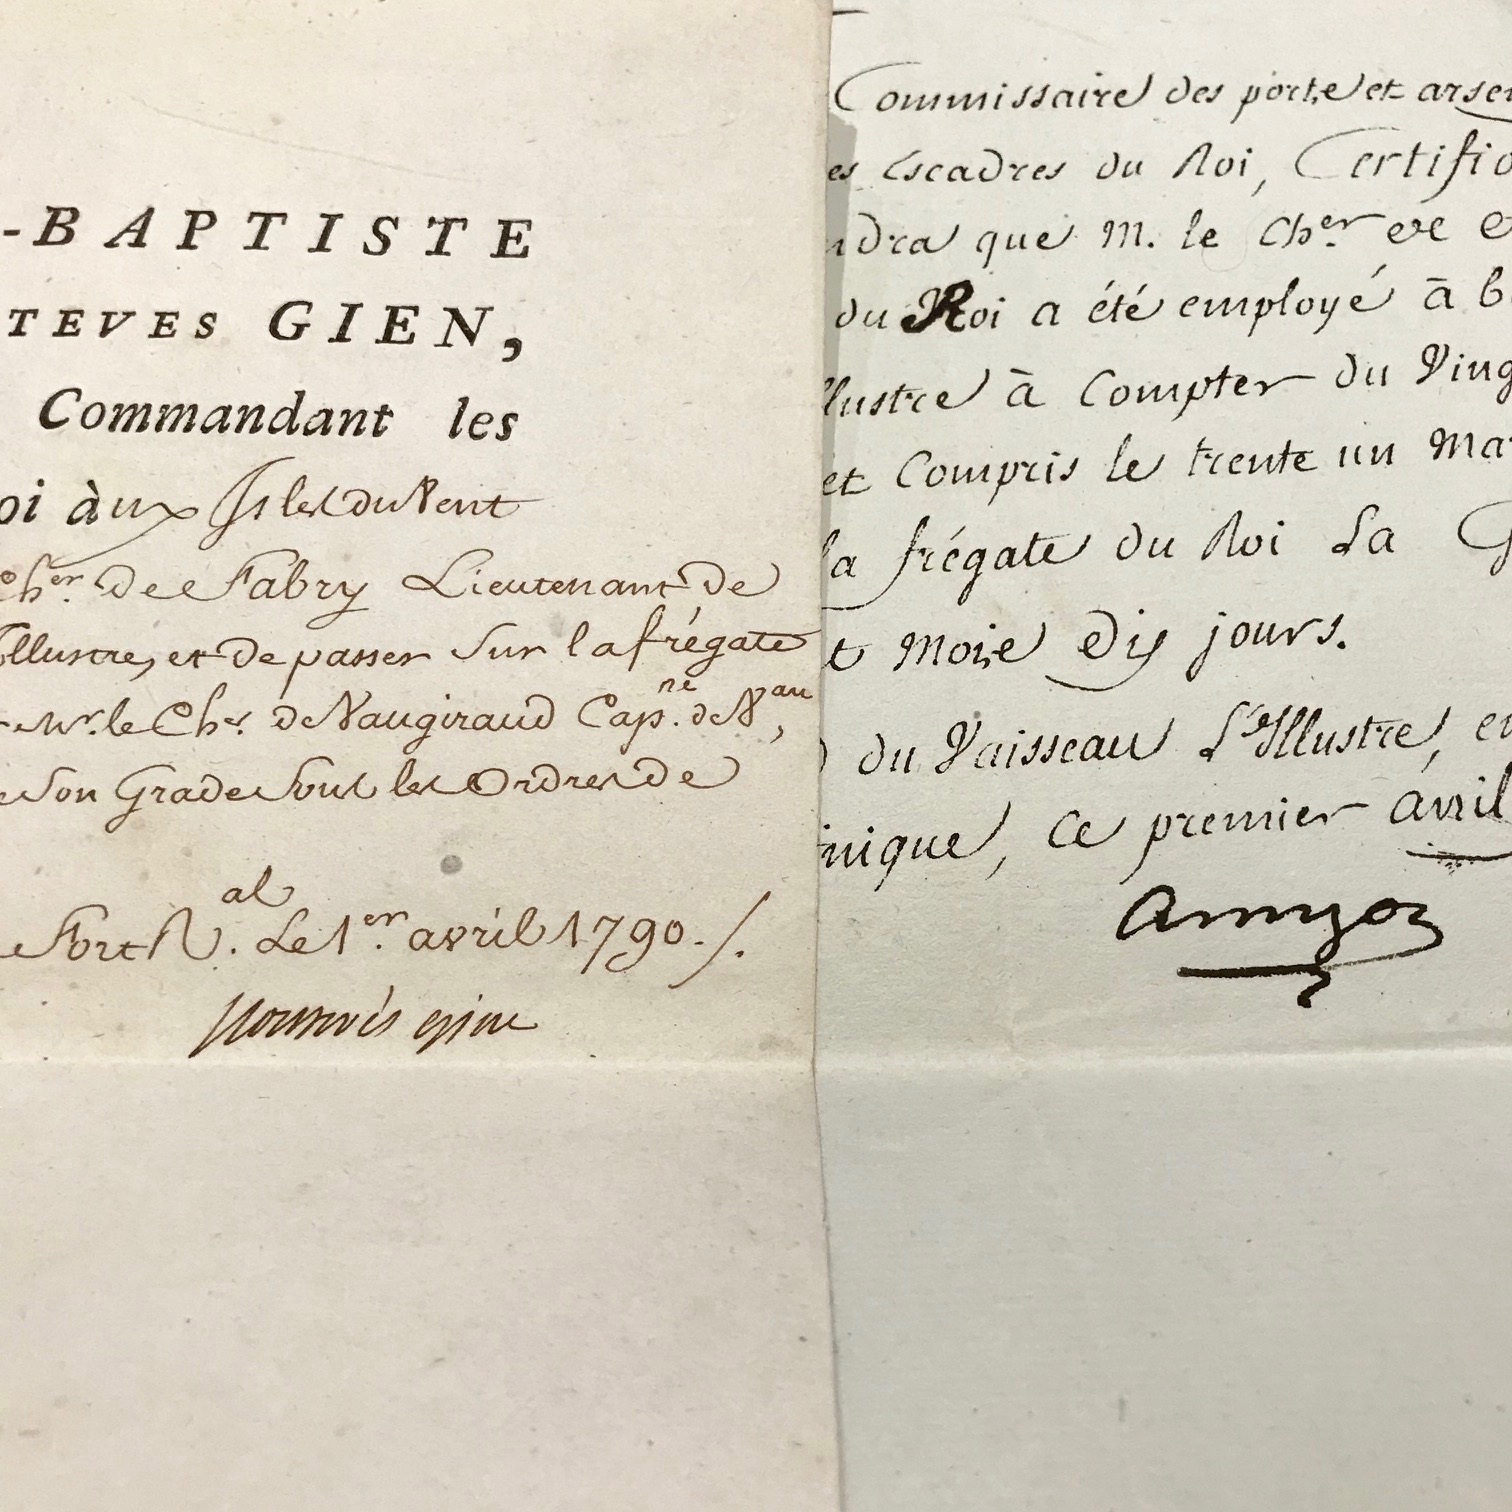 -BAPTISTE
TEVES GIEN,
Commandant les
oi àux Isles du Vent
Cher. de Fabry Lieutenant de
illustre, et de passer Sur la frégate
Mr. le Cher. de Vaugiraud Capne. de Vau,
Son Grade Sous les Ordres de
Fort Ral. Le 1er. avril 1790./.
Commissaire des ports et arsen
es Escadres du Roi, Certifio
ndra que M. le Cher. de
du Roi a été employé à b
llustre à Compter du Ving
et Compris le trente un Mar
la frégate du Roi La G
t Mois Dix jours.
du Vaisseau L'Illustre, en
inique, Ce premier avril